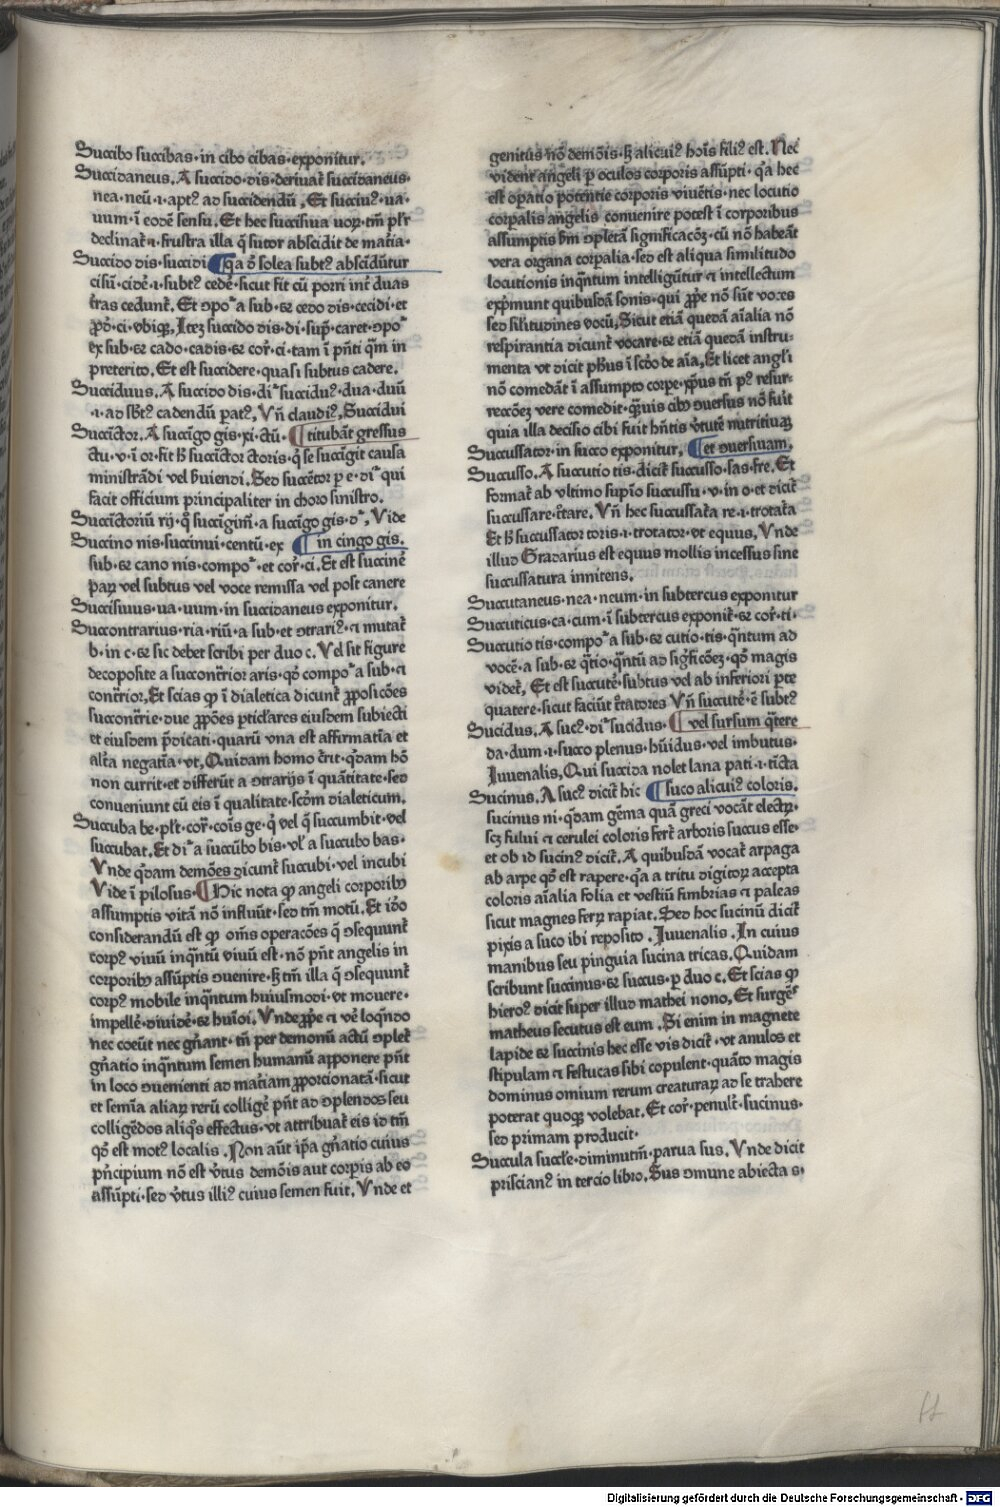 Succibo succibas·in cibo cibas·exponitur.
Succidaneus. A succido·dis·deriuat᷑ succidaneus·
nea·neū·i·aptꝰ ad succidendū. Et succiuꝰ·ua·
uum·i eodē sensu. Et hec succisiua uoꝝ·tm̄ pl'r
declinat᷑·i·frustra illa q̄ sutor abscidit de mat'ia·
Succido dis·succidi ¶q̄a d' solea subtꝰ abscidūtur
cisū·cidē·i·subtꝰ cedē·sicut fit cū porri int᷑ duas
t'ras cedunt᷑. Et ꝯpoʳ a sub·⁊ cedo dis·cecidi·et
ꝓdꝰ·ci·vbiqꝫ. Itez succido dis·di·sup̄·caret·ꝯpoʳ
ex sub·⁊ cado·cadis·⁊ cor᷑·ci·tam ī p̄nti q̄m in
preterito. Et est succidere·quasi subtus cadere.
Succiduus. A succido dis·diʳ succiduꝰ·dua·duū
·i·ad sb'tꝰ cadendū patꝰ. Vn̄ claudiꝰ. Succidui
Succīctor. A succīgo gis·xi·ctū· ¶titubāt gressus
ctu·v·ī or·fit h' succīctor ctoris·q̄ se succīgit causa
ministrādi vel b'uiendi. Sed succētor p e·diʳ qui
facit officium principaliter in choro sinistro.
Succīctoriū rij·q̄ succīgim᷑·a succīgo gis·dʳ. Vide
Succino nis·succinui·centū·ex ¶in cingo gis.
sub·⁊ cano nis·compoʳ·et cor᷑·ci. Et est succinē
paꝝ vel subtus vel voce remissa vel post canere
Succisiuus·ua·uum·in succidaneus exponitur.
Succontrarius·ria·riū·a sub·et ꝯtrariꝰ·⁊ mutat᷑
b·in c·⁊ sic debet scribi per duo c. Vel sit figure
decoposite a succont'rior aris·qd' compoʳ a sub·⁊
cont'rior. Et scias ꝙ ī dialetica dicunt᷑ ꝓposicōes
succont'rie·due ꝓpōes ꝑticl'ares eiusdem subiecti
et eiusdem p̄dicati·quarū vna est affirmatīa et
alt'a negatīa·vt. Quidam homo c'rit·q̄dam hō
non currit·et differūt a ꝯtrarijs ī quātitate·sed
conueniunt cū eis ī qualitate·scd'm dialeticum.
Succuba be·pl't·cor᷑·cois ge·q̄ vel q̄ succumbit·vel
succubat. Et diʳ a succūbo bis·vl' a succubo bas·
Vnde q̄dam demōes dicunt᷑ succubi·vel incubi
Vide ī pilosus· ¶Hic nota ꝙ angeli corporibꝫ
assumptis vitā nō influūt·sed tm̄ motū. Et id'o
considerandū est ꝙ om̄s operacōes q̄ ꝯsequunt᷑
corpꝰ viuū inq̄ntū viuū est·nō p̄nt angelis in
corporibꝫ assūptis ꝯuenire·s; tm̄ illa q̄ ꝯsequunt᷑
corpꝰ mobile inq̄ntum huiusmodi·vt mouere·
impellē·diuidē·⁊ hm̄oi. Vnde ꝓp̄e ⁊ vē loqn̄do
nec coeūt nec gn̄ant·tn̄ per demonū actū ꝯplet᷑
gn̄atio inq̄ntum semen humanū apponere p̄nt
in loco ꝯuenienti ad mat'iam ꝓporcionatā·sicut
et semīa aliaꝝ rerū colligē p̄nt ad ꝯplendos seu
colligēdos aliq̄s effectus·vt attribuat᷑ eis id tm̄
qd' est motꝰ localis. Non aūt ip̄a gn̄atio cuius
p̄ncipium nō est v'tus demōis aut corp̄is ab eo
assūpti·sed v'tus illiꝰ cuius semen fuit. Vnde et
genitus nō demōis·s; alicuiꝰ hoīs filiꝰ est. Nec
vident angeli p oculos corporis assūpti·q̄a hec
est opatio potentie corporis viuētis·nec locutio
corpalis angelis conuenire potest ī corporibus
assumptis s'm ꝯpletā significacōz·cū nō habeāt
vera organa corpalia·sed est aliqua similitudo
locutionis inq̄ntum intelligūtur ⁊ intellectum
exp̄munt quibusdā sonis·qui ꝓp̄e nō sūt voces
sed silitudines vocū. Sicut etiā quedā aīalia nō
respirantia dicunt᷑ vocare·⁊ etiā quedā instru-
menta vt dicit ph'us ī scd'o de aīa. Et licet angl'i
nō comedāt ī assumpto corpe·xp̄us tn̄ pꝰ resur-
reccōez vere comedit·q̄muis cibꝫ ꝯuersus nō fuit
quia illa decisio cibi fuit hn̄tis v'tutē nutritiuaꝝ
Succussator·in succo exponitur. ¶et ꝯuersiuam.
Succusso. A succutio tis·dicit᷑ succusso·sas·sre. Et
format᷑ ab vltimo supīo succussu·v·in o·et dicit᷑
succussare·t'tare. Vn̄ hec succussat'a re·i·trotat'a
Et h' succussator toris·i·trotator·vt equus. Vnde
illud Gradarius est equus mollis incessus sine
succussatura innitens.
Succutaneus·nea·neum·in subtercus exponitur
Succuticus·ca·cum·ī subtercus exponit᷑·⁊ cor᷑·ti·
Succutio tis·compoʳ a sub·⁊ cutio·tis·q̄ntum ad
vocē·a sub·⁊ q̄tio·q̄ntū ad sig'ficōez·qd' magis
videt᷑. Et est succutē·subtus vel ab inferiori pte
quatere·sicut faciūt t'tatores Vn̄ succutē·ē subtꝰ
Sucidus. A sucꝰ·diʳ sucidus· ¶vel sursum q̄tere
da·dum·i·succo plenus·hūidus·vel imbutus·
Iuuenalis. Qui succida nolet lana pati·i·tīcta
Sucinus. A sucꝰ dicit᷑ hic ¶suco alicuiꝰ coloris.
sucinus ni·q̄dam gēma quā greci vocāt electꝝ·
scz fului ⁊ cerulei coloris fert᷑ arboris succus esse·
et ob id sucinꝰ dicit᷑. A quibusdā vocat᷑ arpaga
ab arpe qd' est rapere·q̄a a tritu digitoꝝ accepta
coloris aīalia folia et vestiū fimbrias ⁊ paleas
sicut magnes ferꝝ rapiat. Sed hoc sucinū dicit᷑
pixis a suco ibi reposito. Iuuenalis. In cuius
manibus seu pinguia sucina tricas. Quidam
scribunt succinus·⁊ succus·ꝑ duo c. Et scias ꝙ
hieroꝰ dicit super illud mathei nono. Et surgēs
matheus secutus est eum. Si enim in magnete
lapide ⁊ succinis hec esse vis dicit᷑·vt anulos et
stipulam ⁊ festucas sibi copulent·quāto magis
dominus omium rerum creaturaꝝ ad se trahere
poterat quoqꝫ volebat. Et cor᷑·penult᷑·sucinus·
sed primam producit·
Succula succl'e·diminutm̄·parua sus. Vnde dicit
priscianꝰ in tercio libro. Sus ꝯmune abiecta s·
Digitalisierung gefördert durch die Deutsche Forschungsgemeinschaft · DFG